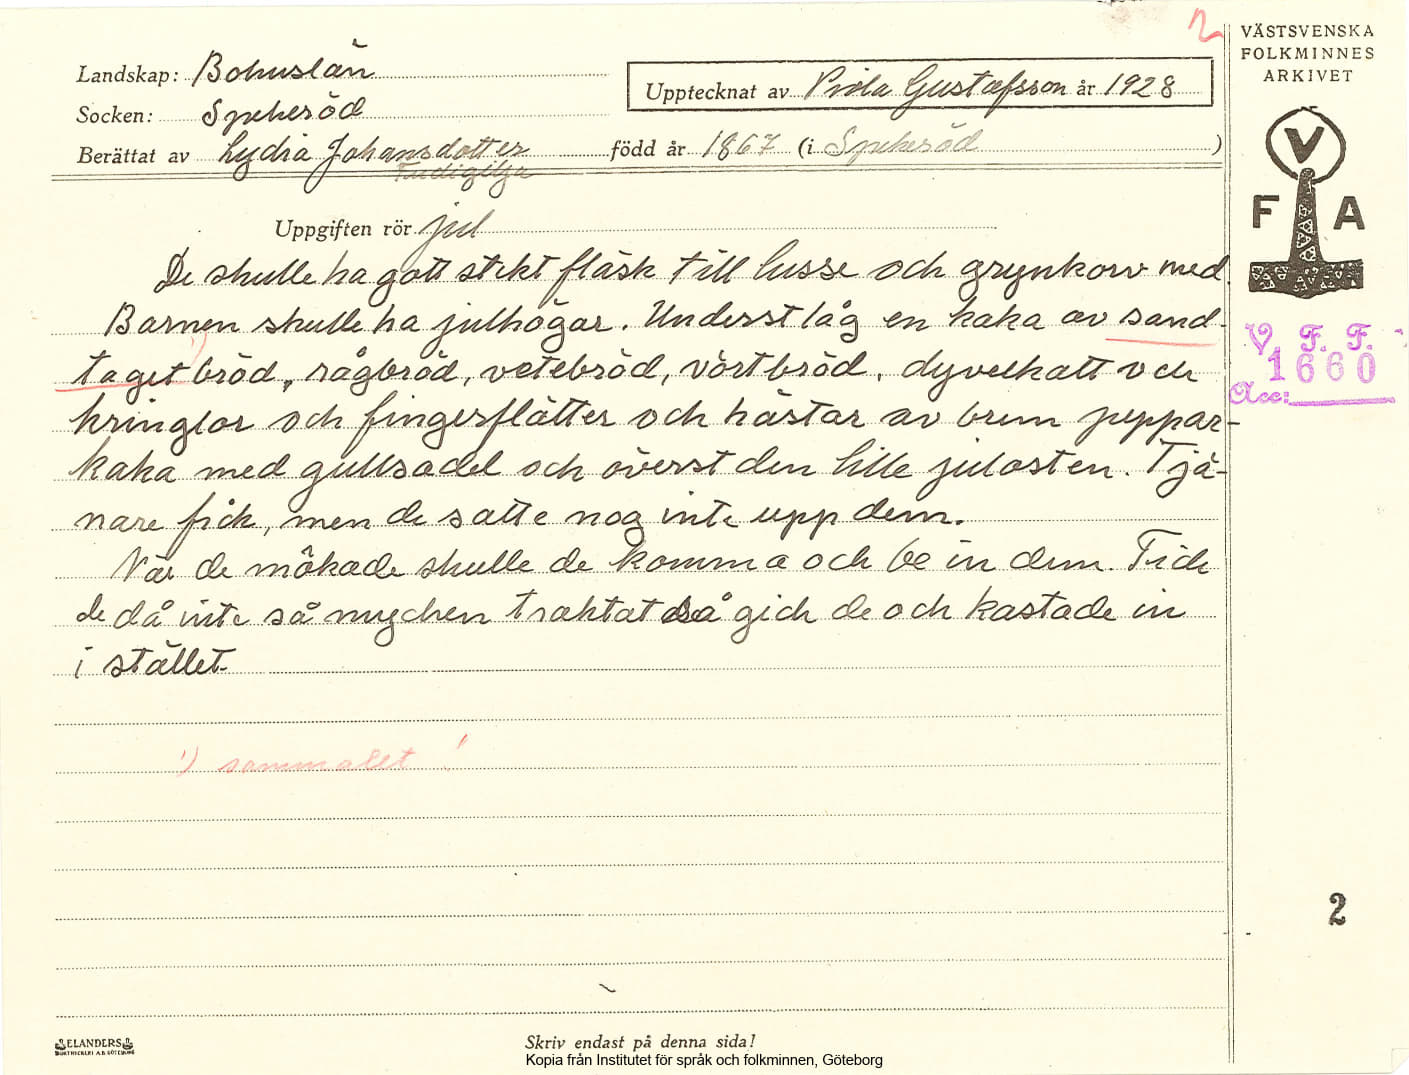 2
VÄSTSVENSKA
FOLKMINNES
ARKIVET
Landskap: Bohuslän
Upptecknat av Viola Gustafsson år 1928
Socken: Spekeröd
Berättat av Lydia Johansdotter född år 1867 (i Spekeröd )
V
F A
Uppgiften rör jul
De skulle ha gott stekt fläsk till lusse och grynkorv med.
Barnen skulle ha julhögar. Underst låg en kaka av sand-
taget 1) bröd, rågbröd, vetebröd, vörtbröd, dyvelkatt och
kringlor och fingerflätter och hästar av brun peppar-
kaka med gullsadel och överst den lille julosten. Tjä-
nare fick, men de satte nog inte upp dem.
När de mökade skulle de komma och be in dem. Fick
de då inte så mycken traktat så gick de och kastade in
i stället.
1) sammalet!
V. F. F.
1660
Acc:
2
ELANDERS
BOKTRYCKERI A.B. GÖTEBORG
Skriv endast på denna sida!
Kopia från Institutet för språk och folkminnen, Göteborg